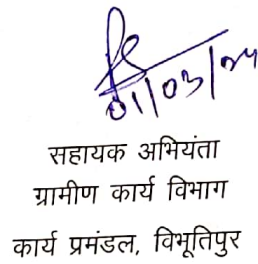 01/03/24
सहायक अभियंता
ग्रामीण कार्य विभाग
कार्य प्रमंडल, विभूतिपुर